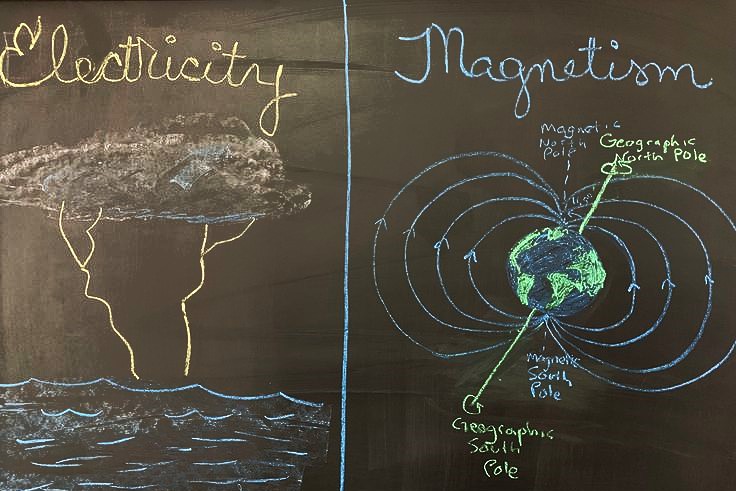 Electricity
Magnetism
Magnetic
North
Pole
Geographic
North Pole
11.5°
Magnetic
South
Pole
Geographic
South
Pole